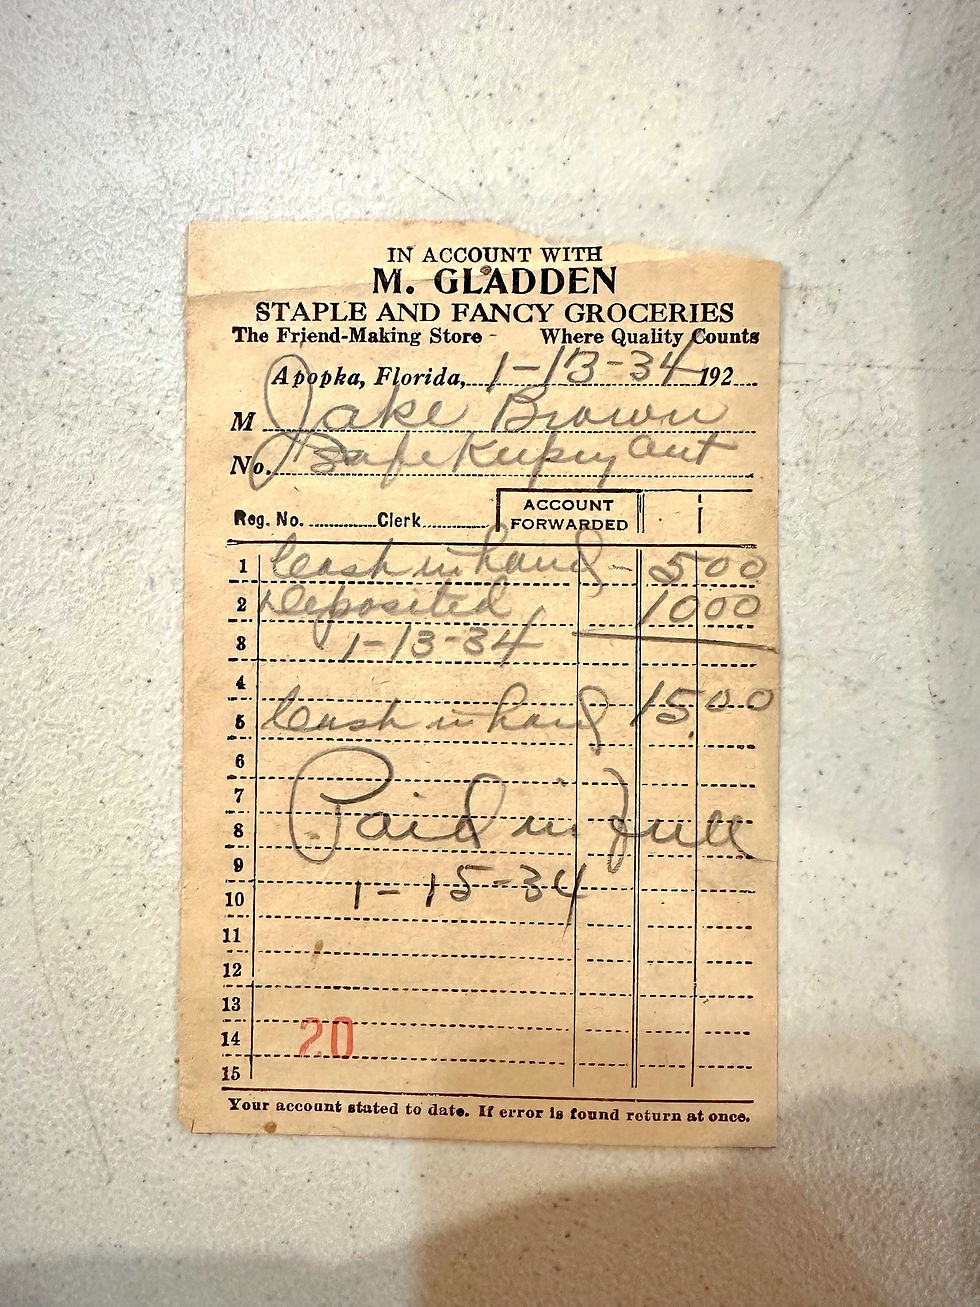 IN ACCOUNT WITH
M. GLADDEN
STAPLE AND FANCY GROCERIES
The Friend-Making Store - Where Quality Counts
Apopka, Florida, 1-13-34 192
M Jake Brown
No. Safe Keeping Acct
Reg. No. Clerk ACCOUNT FORWARDED
1 Cash in hand - 5 00
2 Deposited 10 00
3 1-13-34
4
5 Cash in hand 15.00
6
7
8 Paid in full
9
10 1-15-34
11
12
13
14 20
15
Your account stated to date. If error is found return at once.